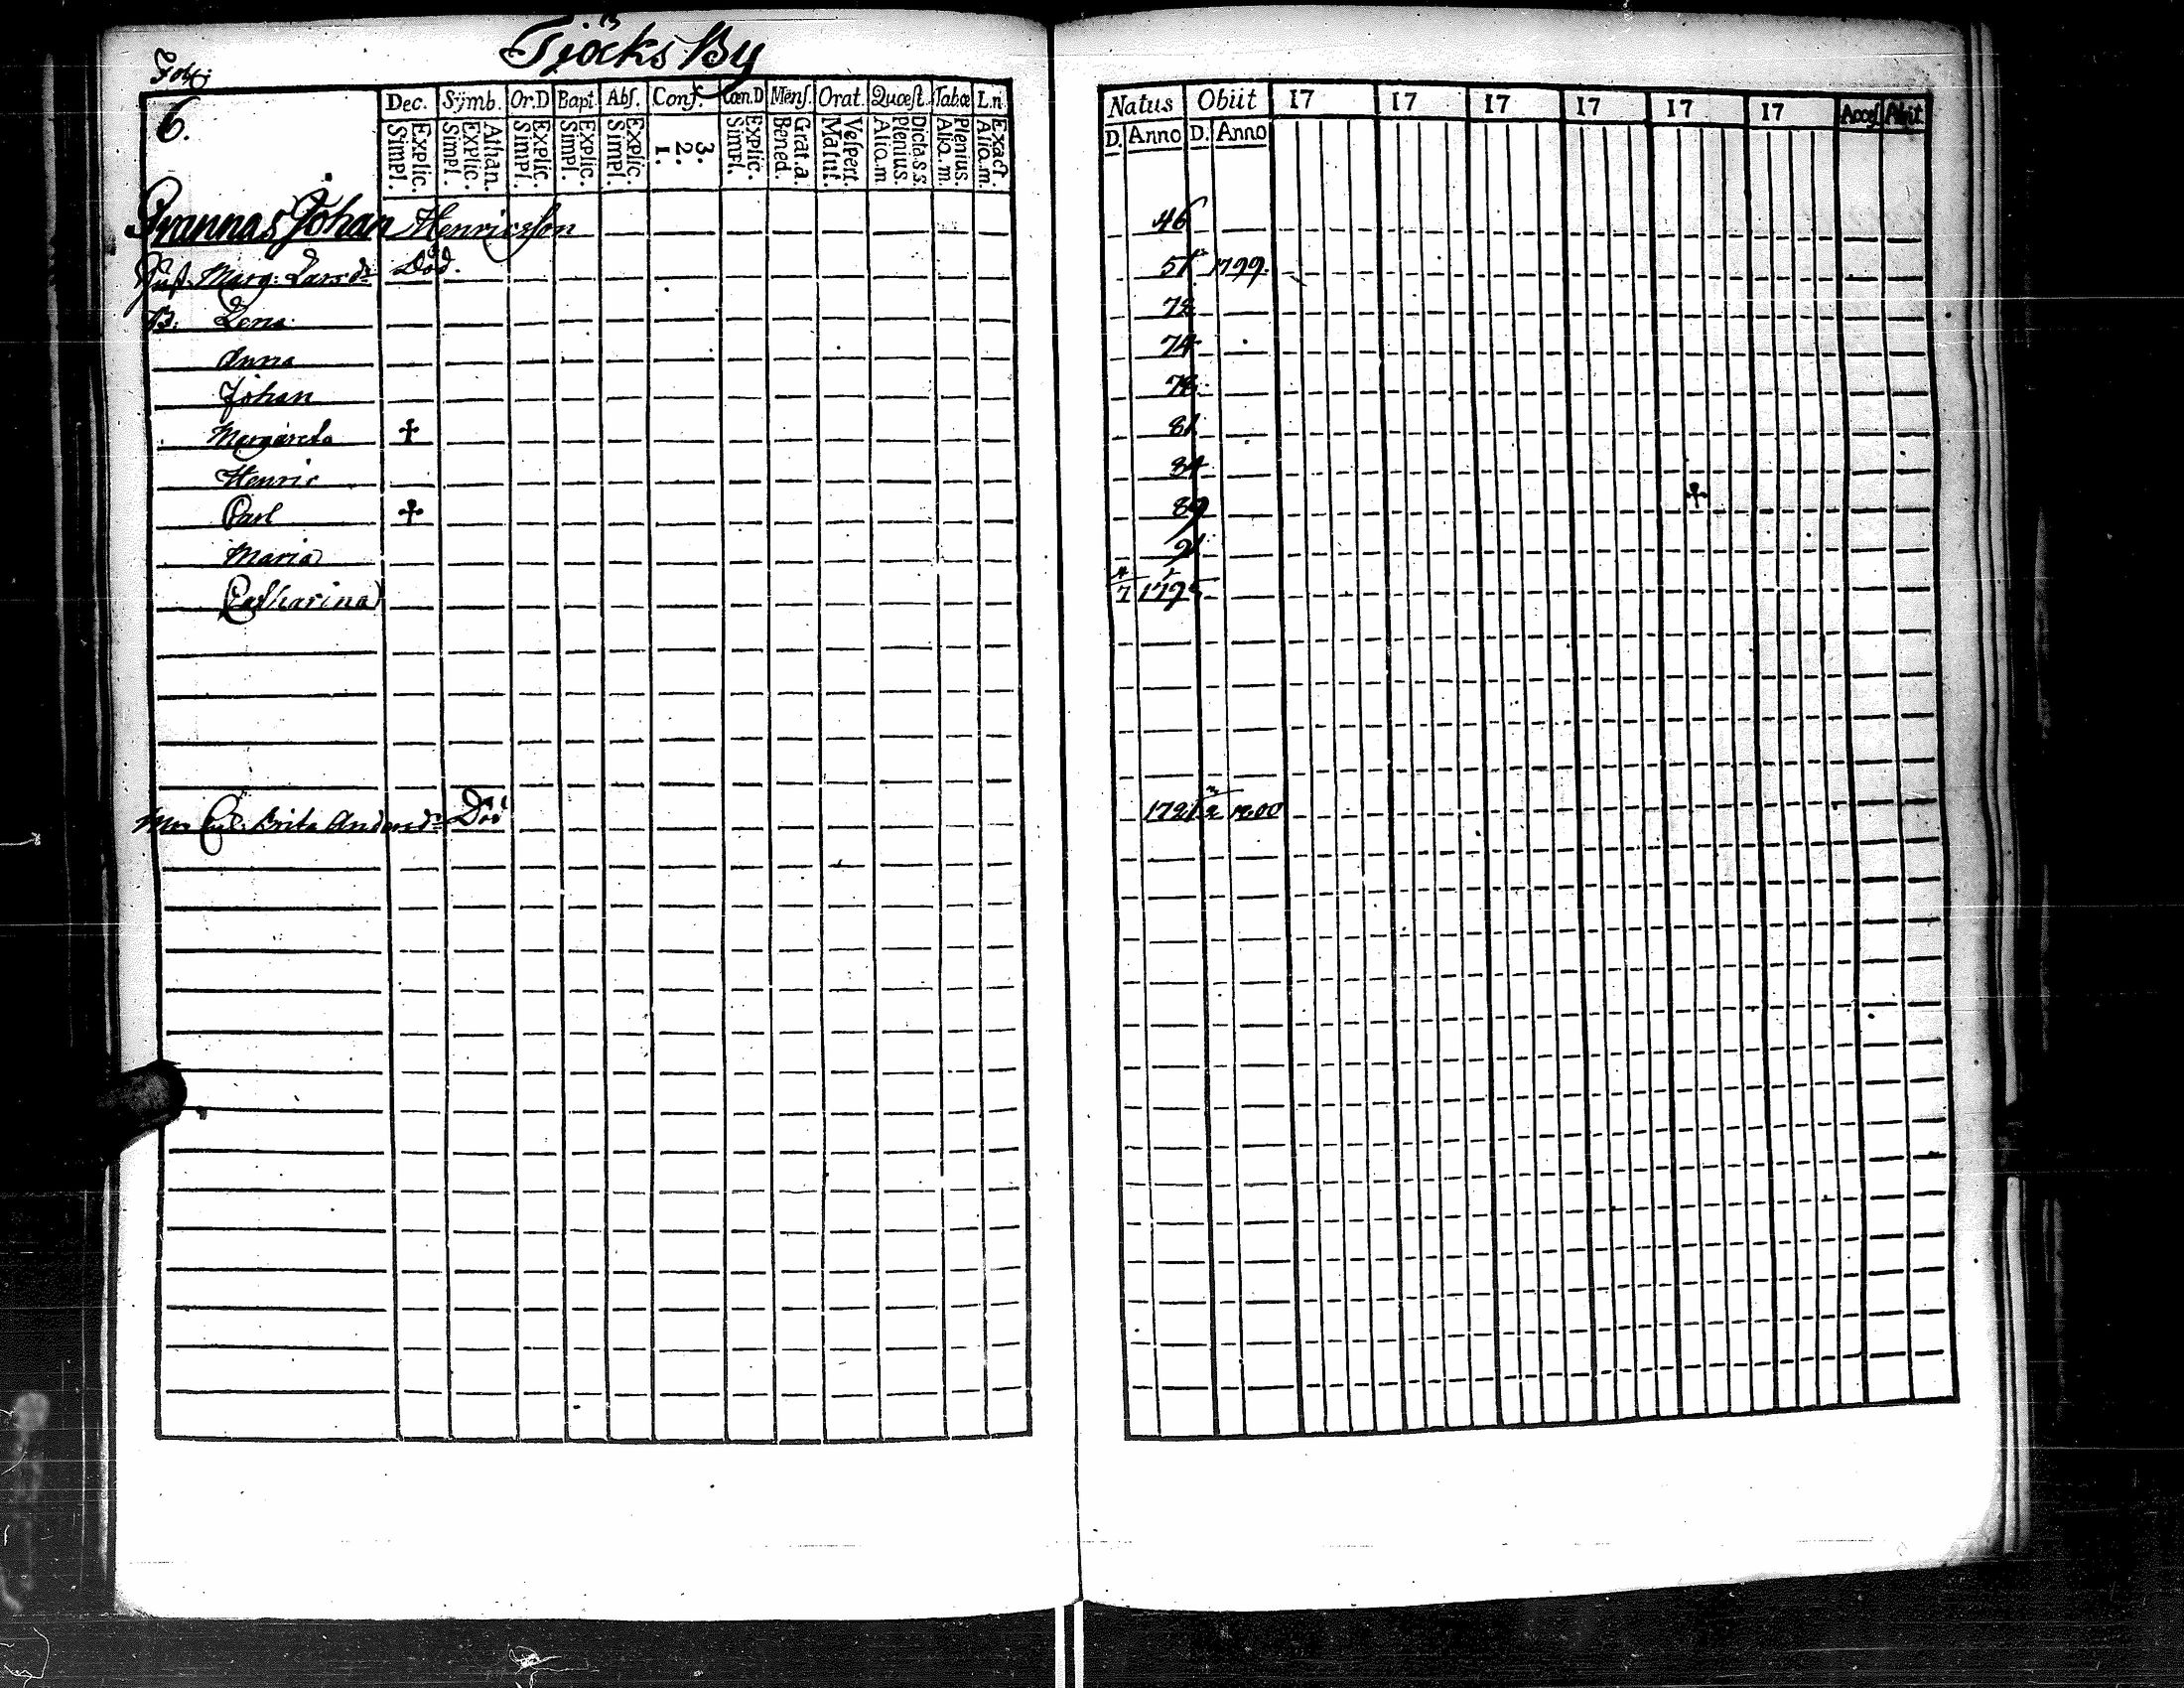 Tjöcks By
6.
Dec. Symb. Or.D Bapt. Abs. Conf. Cœn.D Mens. Orat. Quæst. Tabœ L.n.
Simpl. Explic. Simpl. Explic. Athan. Simpl. Explic. Simpl. Explic. Simpl. Explic. 1. 2. 3. Simpl. Explic. Bened. Grat.a. Matut. Vespert. Aliq.m Plenius. Dicta.s.s. Aliq.m. Plenius. Aliq.m. Exact.
Natus Obiit 17 17 17 17 17 17 Access Abiit
D. Anno D. Anno
Johan Henricsson 46
Hust. Marg. Larsdr Död. 51 1799.
B. Lena 72
Anna 74
Johan 78
Margareta † 81
Henric 84
Carl † 89 †
Maria 91
Catharina 4/7 1795
Brita Andersdr Död 1721 1800